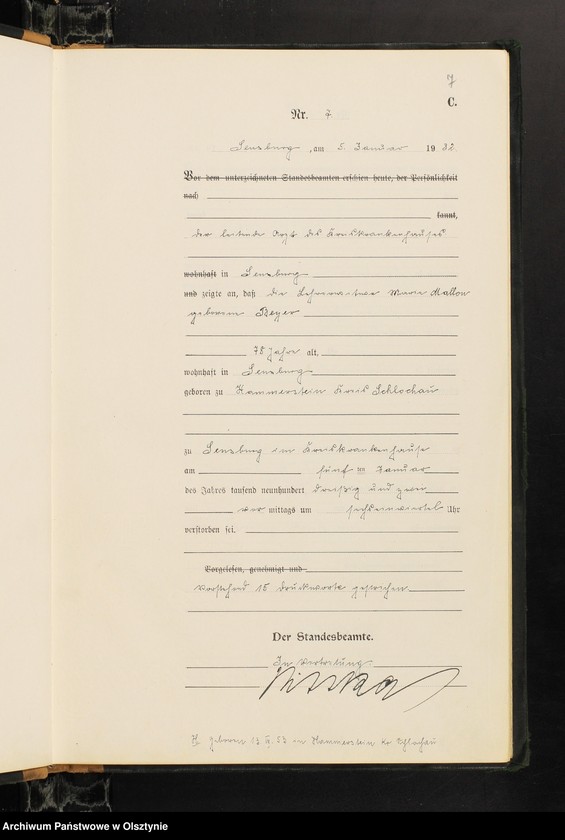 7
C.
Nr. 7
Sensburg, am 5. Januar 1932.
Vor dem unterzeichneten Standesbeamten erschien heute, der Persönlichkeit
nach
kannt,
der leitende Arzt des Kreiskrankenhauses
wohnhaft in Sensburg
und zeigte an, daß die Lehrerwitwe Marie Mallon
geborene Beyer
78 Jahre alt,
wohnhaft in Sensburg
geboren zu Hammerstein Kreis Schlochau
zu Sensburg im Kreiskrankenhause
am fünften Januar
des Jahres tausend neunhundert dreißig und zwei
vor mittags um sechseinviertel Uhr
verstorben sei.
Vorgelesen, genehmigt und
Vorstehend 15 Druckworte gestrichen
Der Standesbeamte.
In Vertretung
geboren in Hammerstein Kr Schlochau
Archiwum Państwowe w Olsztynie